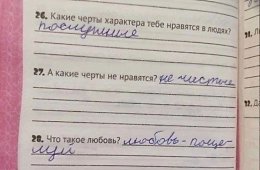 26. Какие черты характера тебе нравятся в людях?
послушные
27. А какие черты не нравятся? не чистые
28. Что такое любовь? любовь - поце-
луи